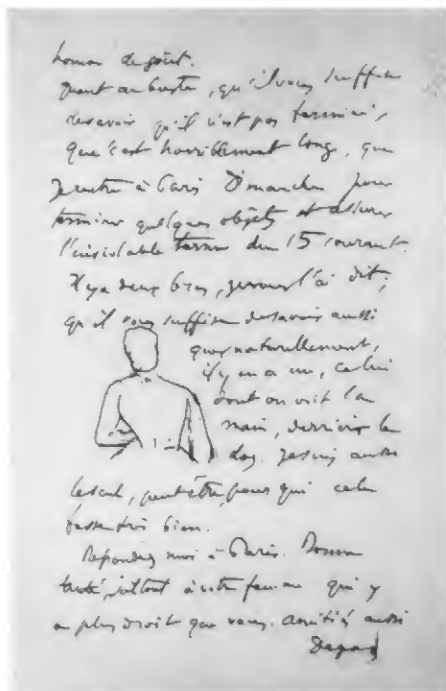 homme de goût.
Quant au buste, qu'il vous suffise
de savoir qu'il n'est pas terminé,
que c'est horriblement long, que
je rentre à Paris Dimanche pour
terminer quelques objets et
l'inviolable terme du 15 courant.
Il y a deux bras, je vous l'ai dit;
qu'il vous suffise de savoir aussi
que naturellement,
il y en a un, celui
dont on voit la
main, derrière le
dos. Je suis aussi
le seul, peut-être, pour qui cela
fasse très bien.
Répondez moi à Paris. Bonne
santé, surtout à votre femme qui y
a plus droit que vous. amitié aussi
Degas